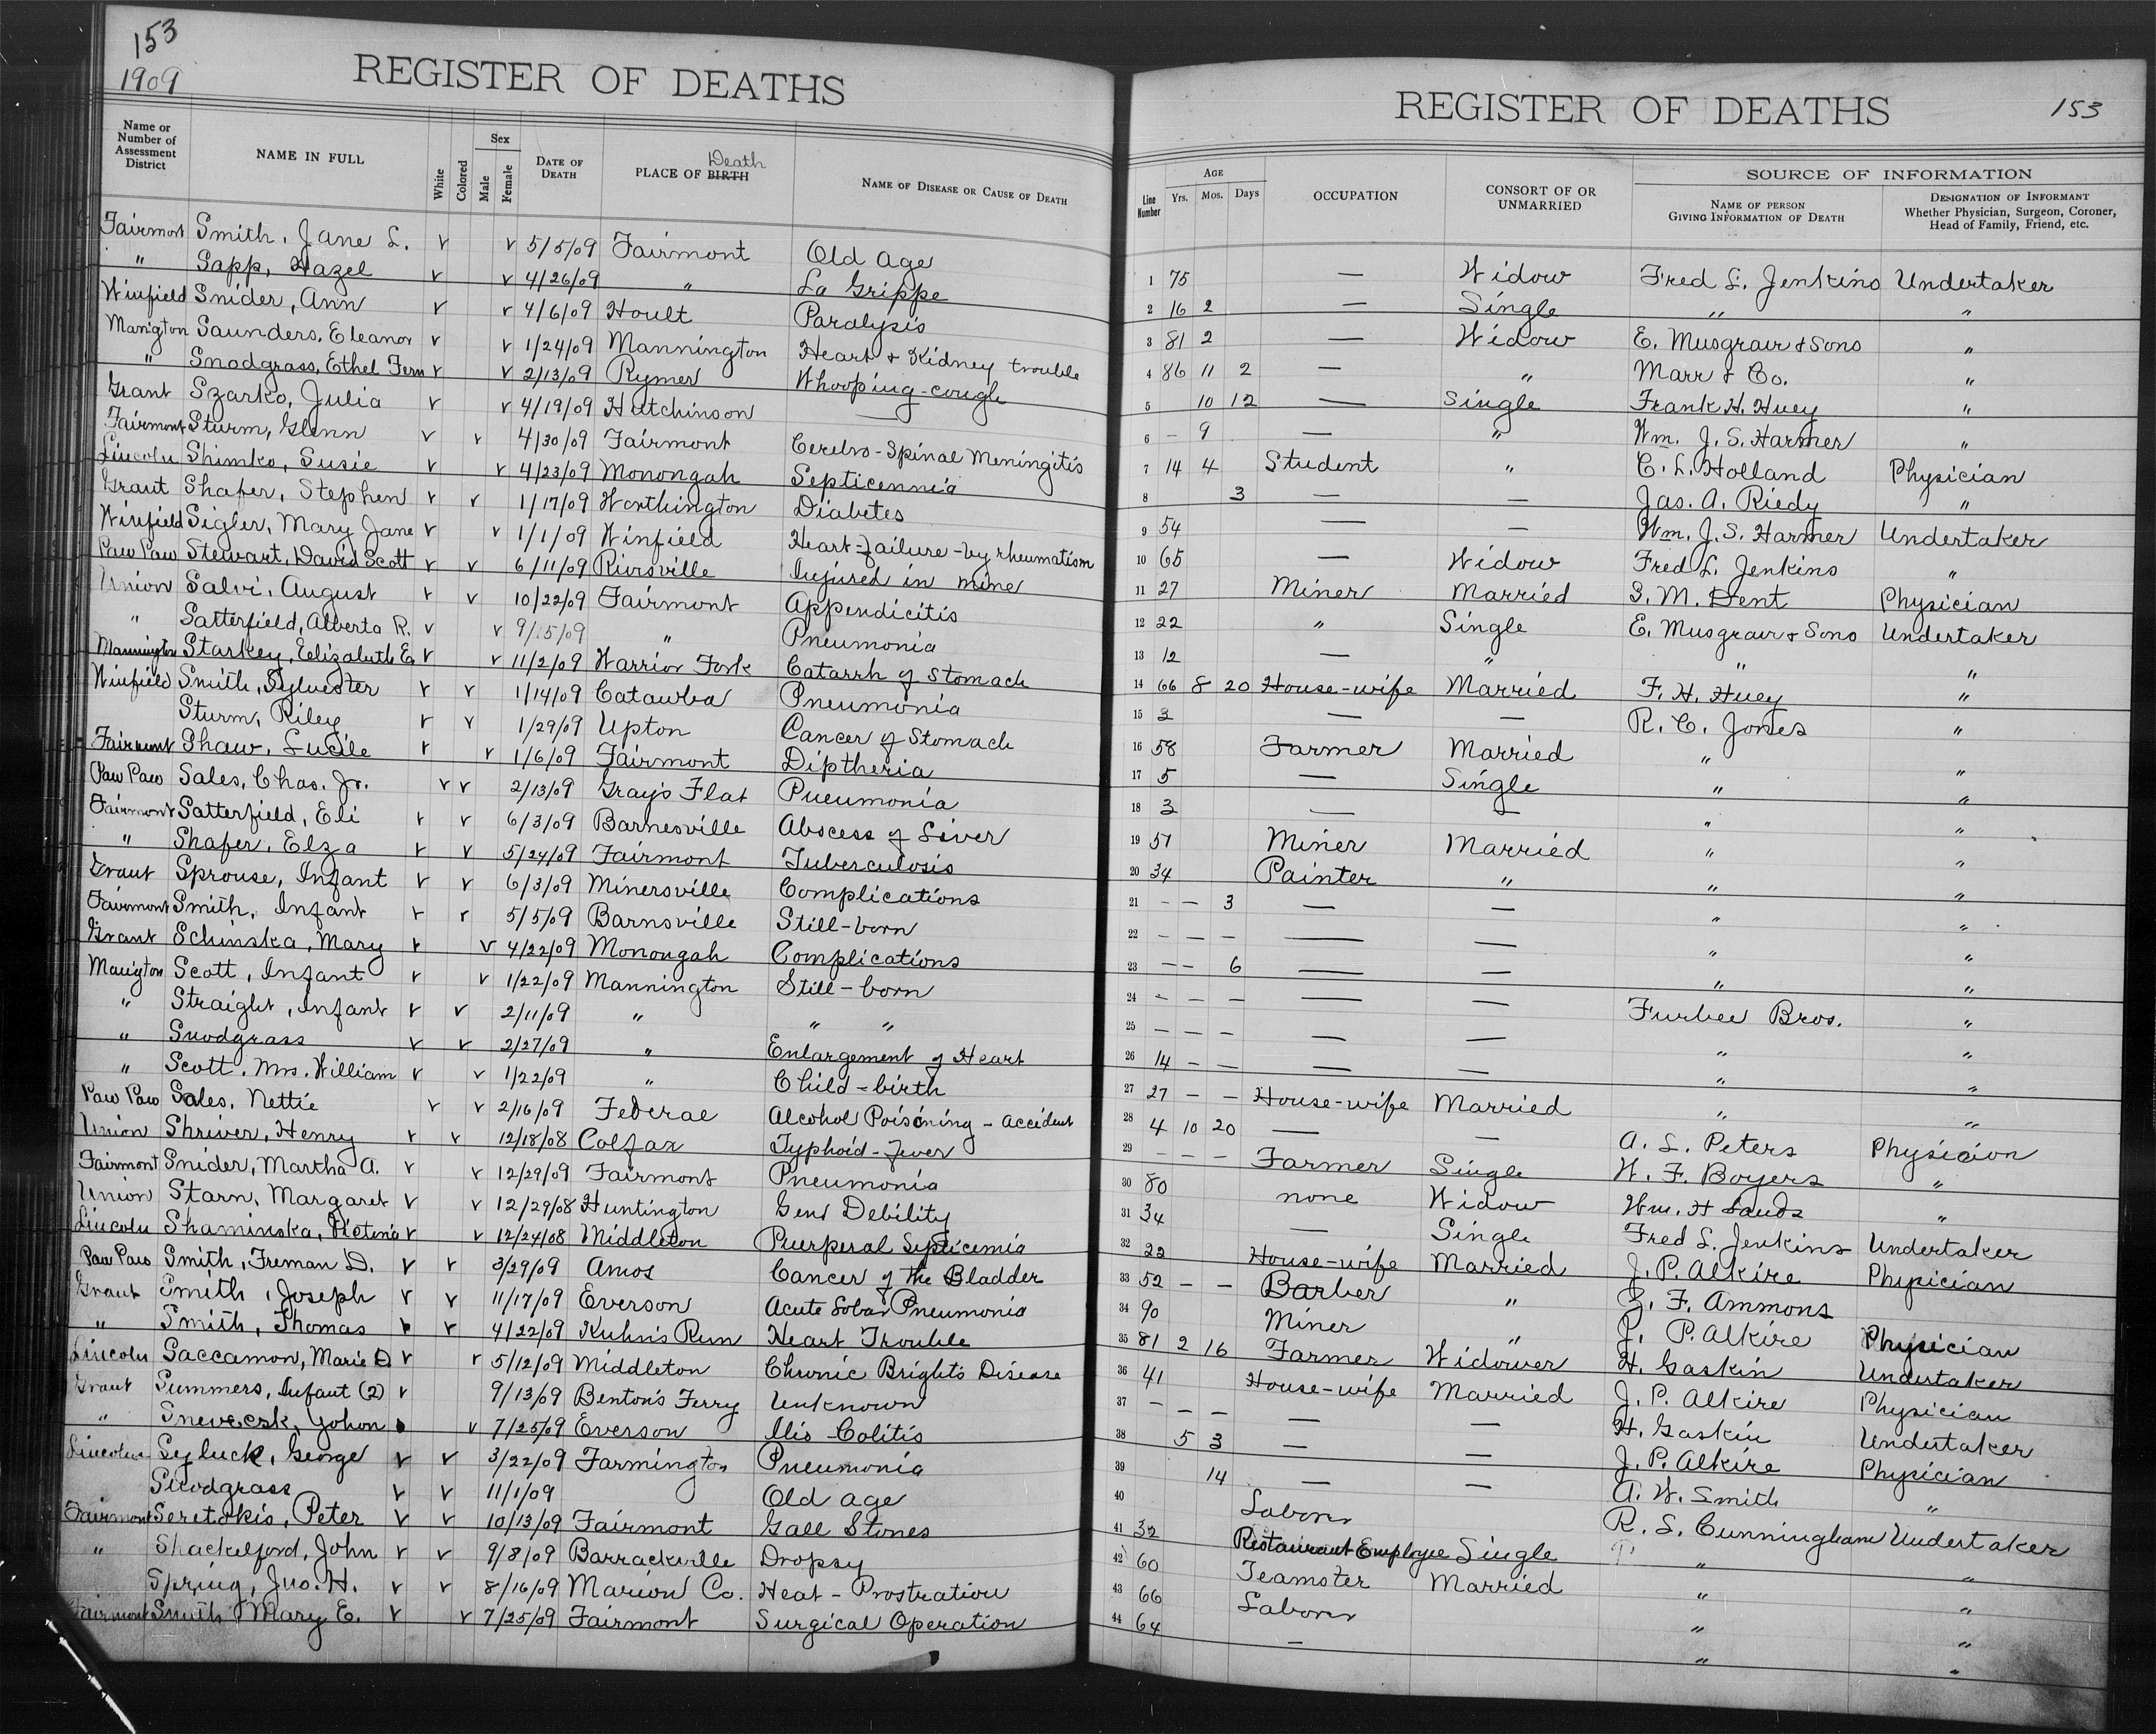 153
1909
REGISTER OF DEATHS
Name or Number of Assessment District | NAME IN FULL | White | Colored | Sex Male | Female | DATE OF DEATH | PLACE OF BIRTH Death | NAME OF DISEASE OR CAUSE OF DEATH
Fairmont Smith, Jane L. v v 5/5/09 Fairmont Old Age
" Sapp, Hazel v v 4/26/09 " La Grippe
Winfield Snider, Ann v v 4/6/09 Hoult Paralysis
Manigton Saunders, Eleanor v v 1/24/09 Mannington Heart & Kidney trouble
" Snodgrass, Ethel Fern v v 2/13/09 Rymer Whooping-cough
Grant Szarko, Julia v v 4/19/09 Hutchinson —
Fairmont Sturm, Glenn v v 4/30/09 Fairmont Cerebro-Spinal Meningitis
Lincoln Shimko, Susie v v 4/23/09 Monongah Septicennia
Grant Shafer, Stephen v v 1/17/09 Worthington Diabetes
Winfield Sigler, Mary Jane v v 1/1/09 Winfield Heart-failure-by rheumatism
Paw Paw Stewart, David Scott v v 6/11/09 Rivisville Injured in mine
Union Salvi, August v v 10/22/09 Fairmont Appendicitis
" Satterfield, Alberta R. v v 9/15/09 " Pneumonia
Mannington Starkey, Eelizabeth E. v v 11/2/09 Warrior Fork Catarrh of Stomach
Winfield Smith, Sylvester v v 1/14/09 Catawba Pneumonia
Sturm, Riley v v 1/29/09 Upton Cancer of Stomach
Fairmont Shaw, Lucile v v 1/6/09 Fairmont Diptheria
Paw Paw Sales, Chas. Jr. v v 2/13/09 Gray's Flat Pneumonia
Fairmont Satterfield, Eli v v 6/3/09 Barnesville Abscess of Liver
" Shafer, Elza v v 5/24/09 Fairmont Tuberculosis
Grant Sprouse, Infant v v 6/3/09 Minersville Complications
Fairmont Smith, Infant v v 5/5/09 Barnsville Still-born
Grant Schinska, Mary v v 4/22/09 Monongah Complications
Manigton Scott, Infant v v 1/22/09 Mannington Still-born
" Straight, Infant v v 2/11/09 " " "
" Snodgrass v v 2/27/09 " Enlargement of Heart
" Scott, Mrs. William v v 1/22/09 " Child-birth
Paw Paw Sales, Nettie v v 2/16/09 Federal Alcohol Poisining - accident
Union Shriver, Henry v v 12/18/08 Colfax Typhoid-Fever
Fairmont Snider, Martha A. v v 12/29/09 Fairmont Pneumonia
Union Starn, Margaret v v 12/29/08 Huntington Genl Debility
Lincoln Shaminska, Victoria v v 12/24/08 Middleton Puerperal Septicemia
Paw Paw Smith, Freman D. v v 3/29/09 Amos Cancer of the Bladder
Grant Smith, Joseph v v 11/17/09 Everson Acute Lobar Pneumonia
" Smith, Thomas v v 4/22/09 Kuhn's Run Heart Trouble
Lincoln Saccamon, Marie D v v 5/12/09 Middleton Chronic Brights Disease
Grant Summers, Infant (2) v 9/13/09 Benton's Ferry Unknown
" Yohon v 7/25/09 Everson Colitis
Lincoln Seyluck, George v v 3/22/09 Farmington Pneumonia
Snodgrass v v 11/1/09 Old age
Fairmont Seretakis, Peter v v 10/13/09 Fairmont Gall Stones
" Shackelford, John v v 9/8/09 Barrackville Dropsy
Spring, Jno. H. v v 8/16/09 Marion Co. Heat-Prostration
Fairmont Smith, Mary E. v v 7/25/09 Fairmont Surgical Operation
REGISTER OF DEATHS 153
Line Number | AGE Yrs. | Mos. | Days | OCCUPATION | CONSORT OF OR UNMARRIED | SOURCE OF INFORMATION | NAME OF PERSON GIVING INFORMATION OF DEATH | DESIGNATION OF INFORMANT Whether Physician, Surgeon, Coroner, Head of Family, Friend, etc.
1 75 — Widow Fred L. Jenkins Undertaker
2 16 2 — Single " "
3 81 2 — Widow E. Musgrave & Sons "
4 86 11 2 — " Marr & Co. "
5 10 12 — Single Frank H. Huey "
6 – 9 — " Wm. J. S. Harmer "
7 14 4 Student " C. L. Holland Physician
8 3 — — Jas. A. Riedy "
9 54 — — Wm. J. S. Harmer Undertaker
10 65 — Widow Fred L. Jenkins "
11 27 Miner Married S. M. Dent Physician
12 22 " Single E. Musgrave & Sons Undertaker
13 12 — " " "
14 66 8 20 House-wife Married F. H. Huey "
15 3 — — R. C. Jones "
16 58 Farmer Married " "
17 5 — Single " "
18 3 — — " "
19 57 Miner Married " "
20 34 Painter " " "
21 – – 3 — — " "
22 – – – — — " "
23 – – 6 — — " "
24 – – – — — Furbee Bros. "
25 – – – — — " "
26 14 – – — — " "
27 27 – – House-wife Married " "
28 4 10 20 — — A. L. Peters Physician
29 – – – Farmer Single W. F. Boyers "
30 80 none Widow Wm. H Sands "
31 34 — Single Fred L. Jenkins Undertaker
32 22 House-wife Married J. P. Alkire Physician
33 52 – – Barber " F. Ammons
34 90 Miner " J. P. Alkire Physician
35 81 2 16 Farmer Widower H. Gaskin Undertaker
36 41 House-wife Married J. P. Alkire Physician
37 – – – — — H. Gaskin Undertaker
38 5 3 — — J. P. Alkire Physician
39 14 — — A. W. Smith "
40 Laborer R. L. Cunningham Undertaker
41 32 Restaurant Employee Single " "
42 60 Teamster Married " "
43 66 Laborer " "
44 64 – " "